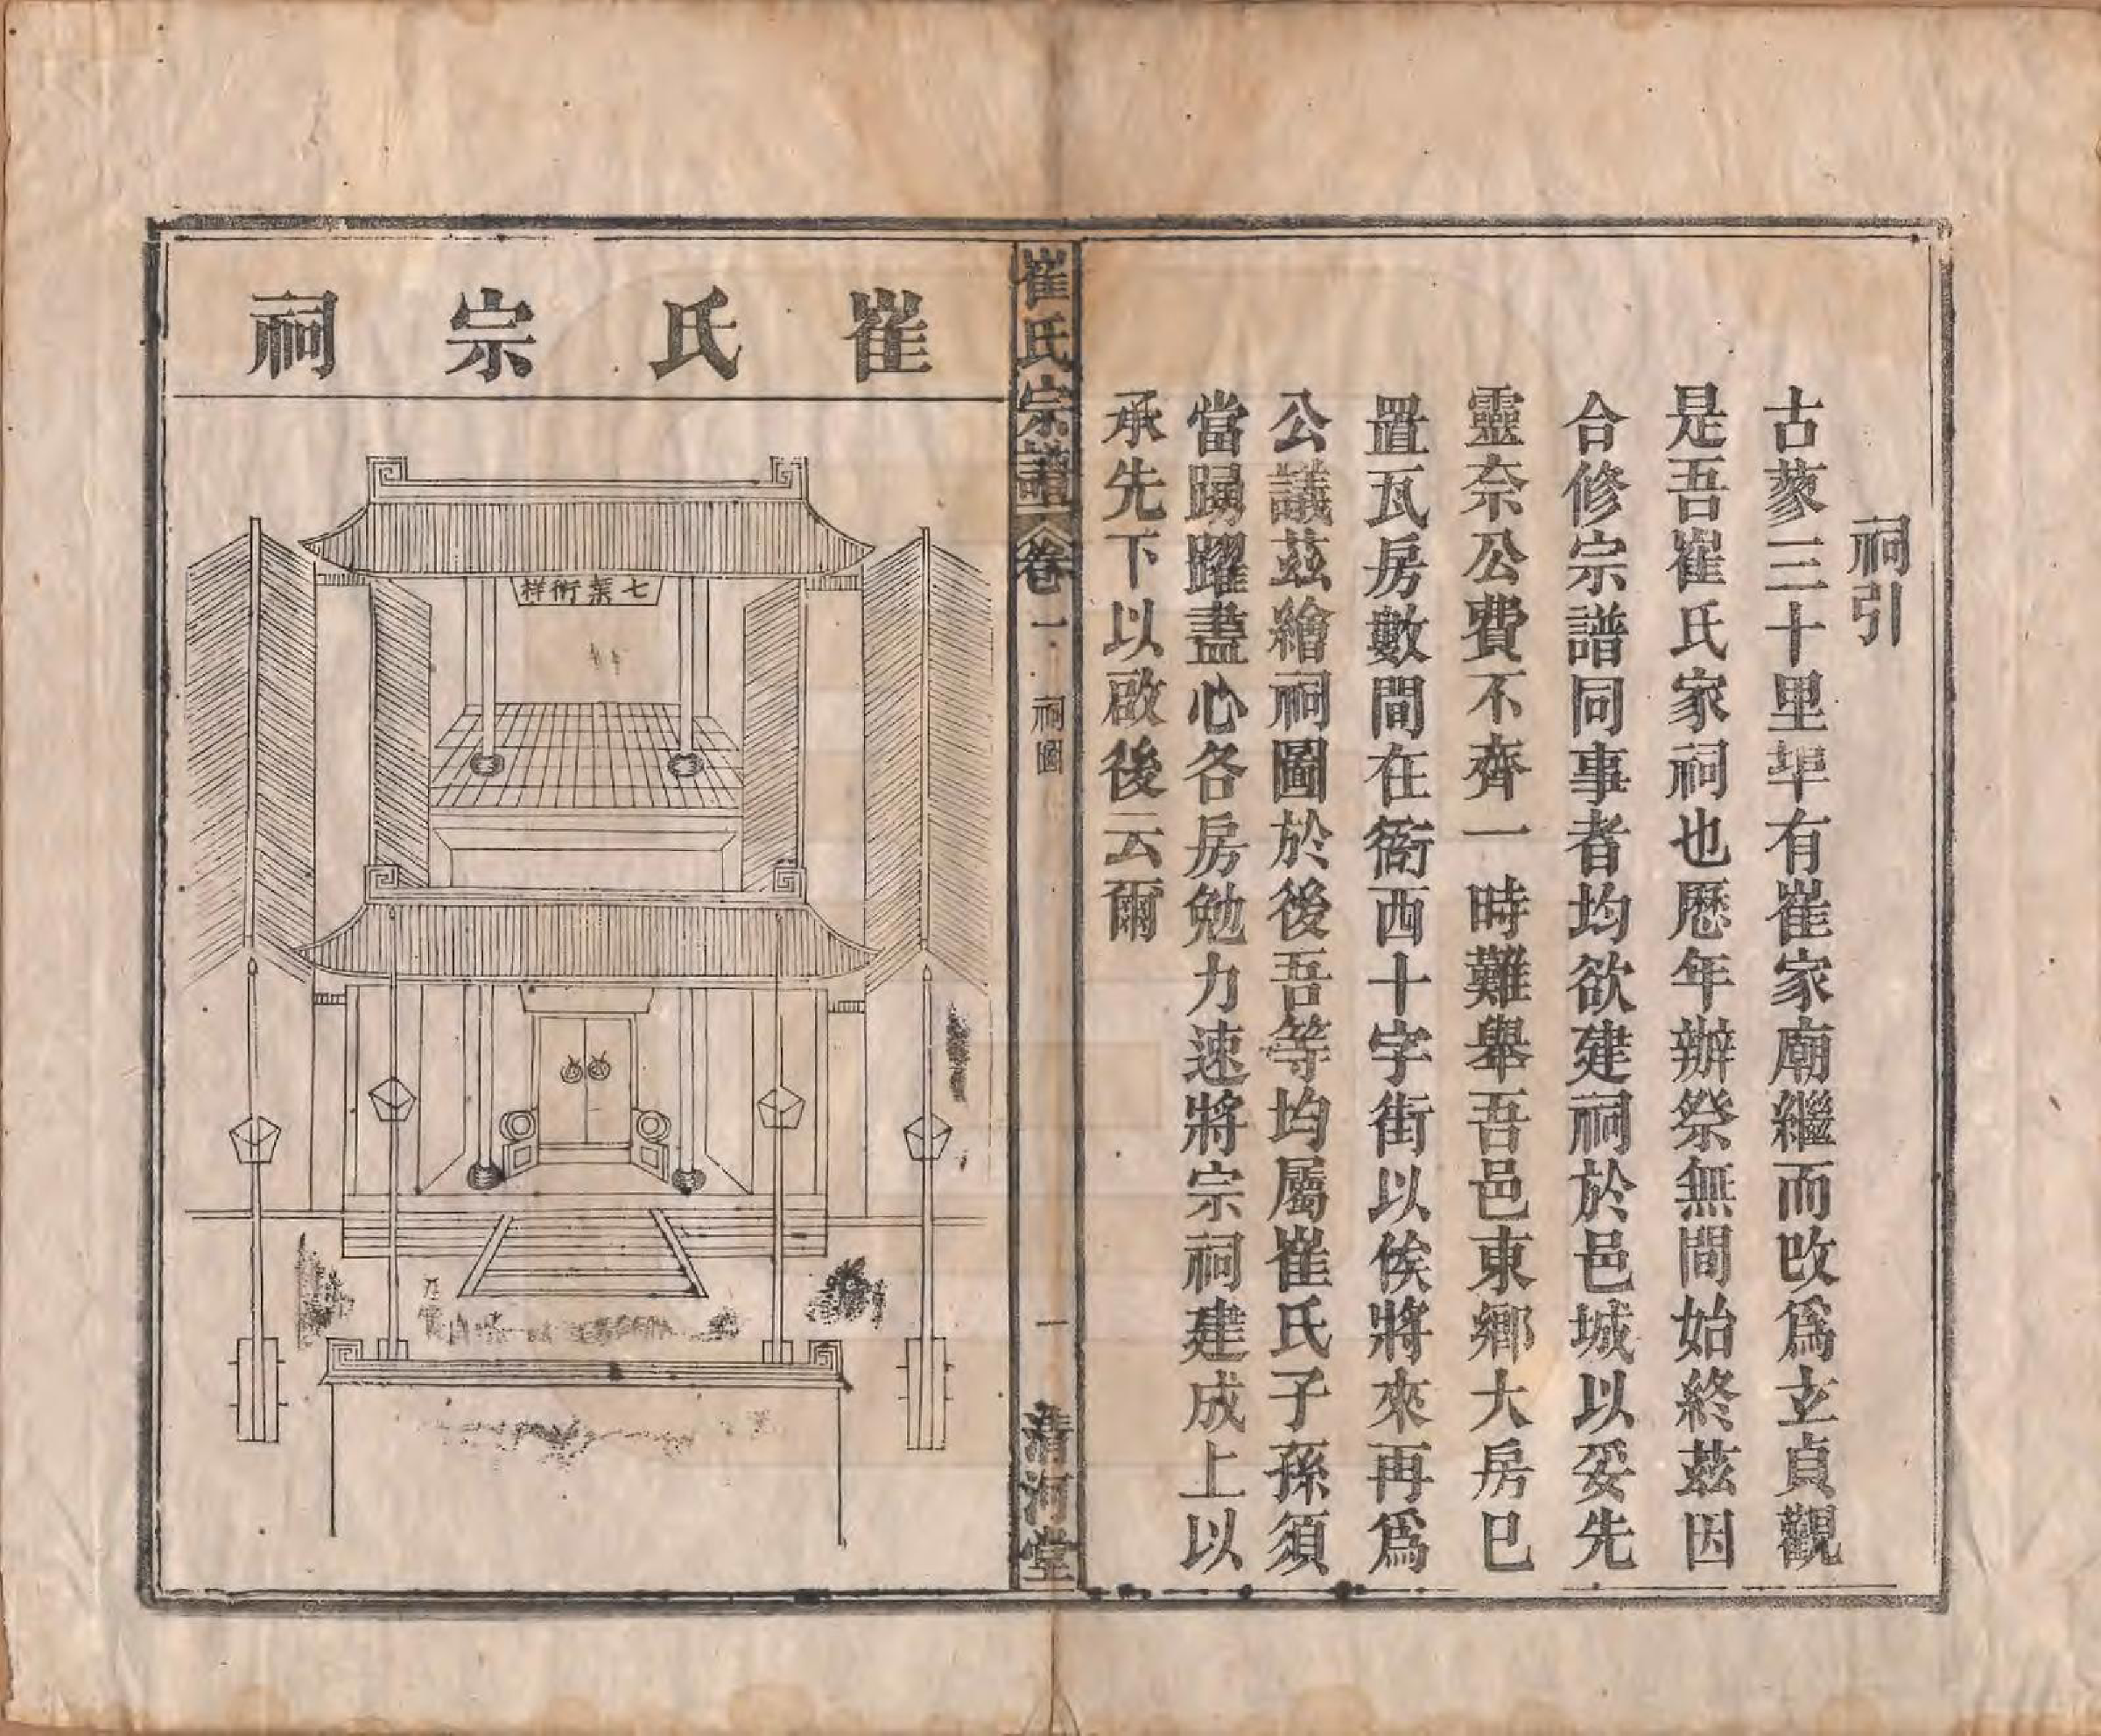 祠引
古蓼三十里埠有崔家廟繼而改爲玄貞觀
是吾崔氏家祠也歷年辦祭無間始終茲因
合修宗譜同事者均欲建祠於邑城以妥先
靈奈公費不齊一時難舉吾邑東鄉大房已
置瓦房數間在衙西十字街以俟將來再爲
公議茲繪祠圖於後吾等均屬崔氏子孫須
當踢躍盡心各房勉力速將宗祠建成上以
承先下以啟後云爾
崔氏宗譜 卷一 祠圖 一 清河堂
崔氏宗祠
七葉衍祥